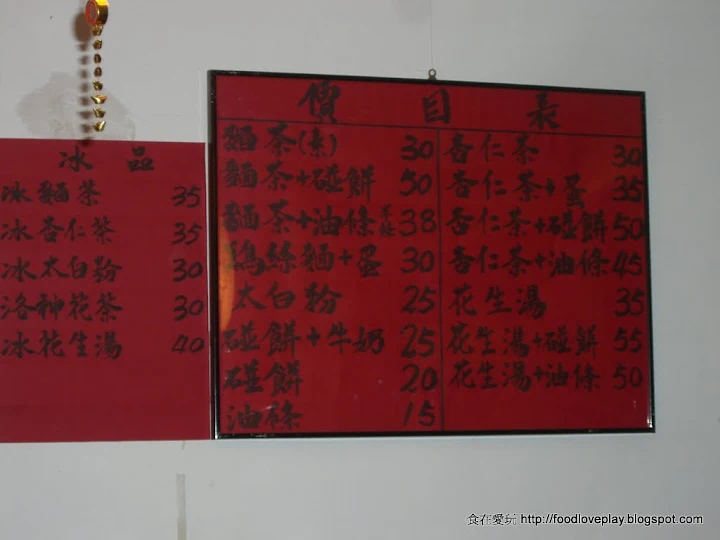 冰品
冰麵茶 35
冰杏仁茶 35
冰太白粉 30
洛神花茶 30
冰花生湯 40
價目表
麵茶(素) 30
麵茶+碰餅 50
麵茶+油條 38
鷄絲麵+蛋 30
太白粉 25
碰餅+牛奶 25
碰餅 20
油條 15
杏仁茶 30
杏仁茶+蛋 35
杏仁茶+碰餅 50
杏仁茶+油條 45
花生湯 35
花生湯+碰餅 55
花生湯+油條 50
食在愛玩 http://foodloveplay.blogspot.com